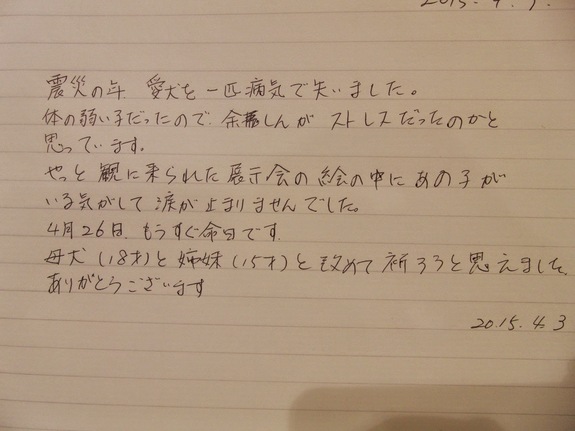 2015.4.3
震災の年 愛犬を一匹病気で失いました。
体の弱い子だったので、余震しんが ストレスだったのかと
思っています。
やっと観に来られた展示会の絵の中にあの子が
いる気がして涙が止まりませんでした。
4月26日 もうすぐ命日です。
母犬(18才)と姉妹(15才)と改めて祈ろうと思えました。
ありがとうございます
2015.4.3